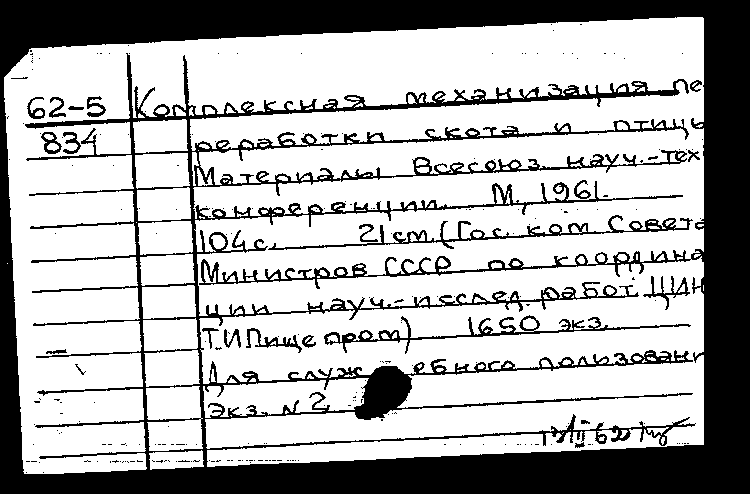 62-5 Комплексная механизация пе
834 реработки скота и птицы
Материалы Всесоюз. науч.-тех
конференции. М., 1961.
104с. 21см. (Гос. ком. Совета
Министров СССР по координа
ции науч.-исслед. работ. ЦИН
ТИПищепром) 1650 экз.
Для служебного пользован
экз. N 2